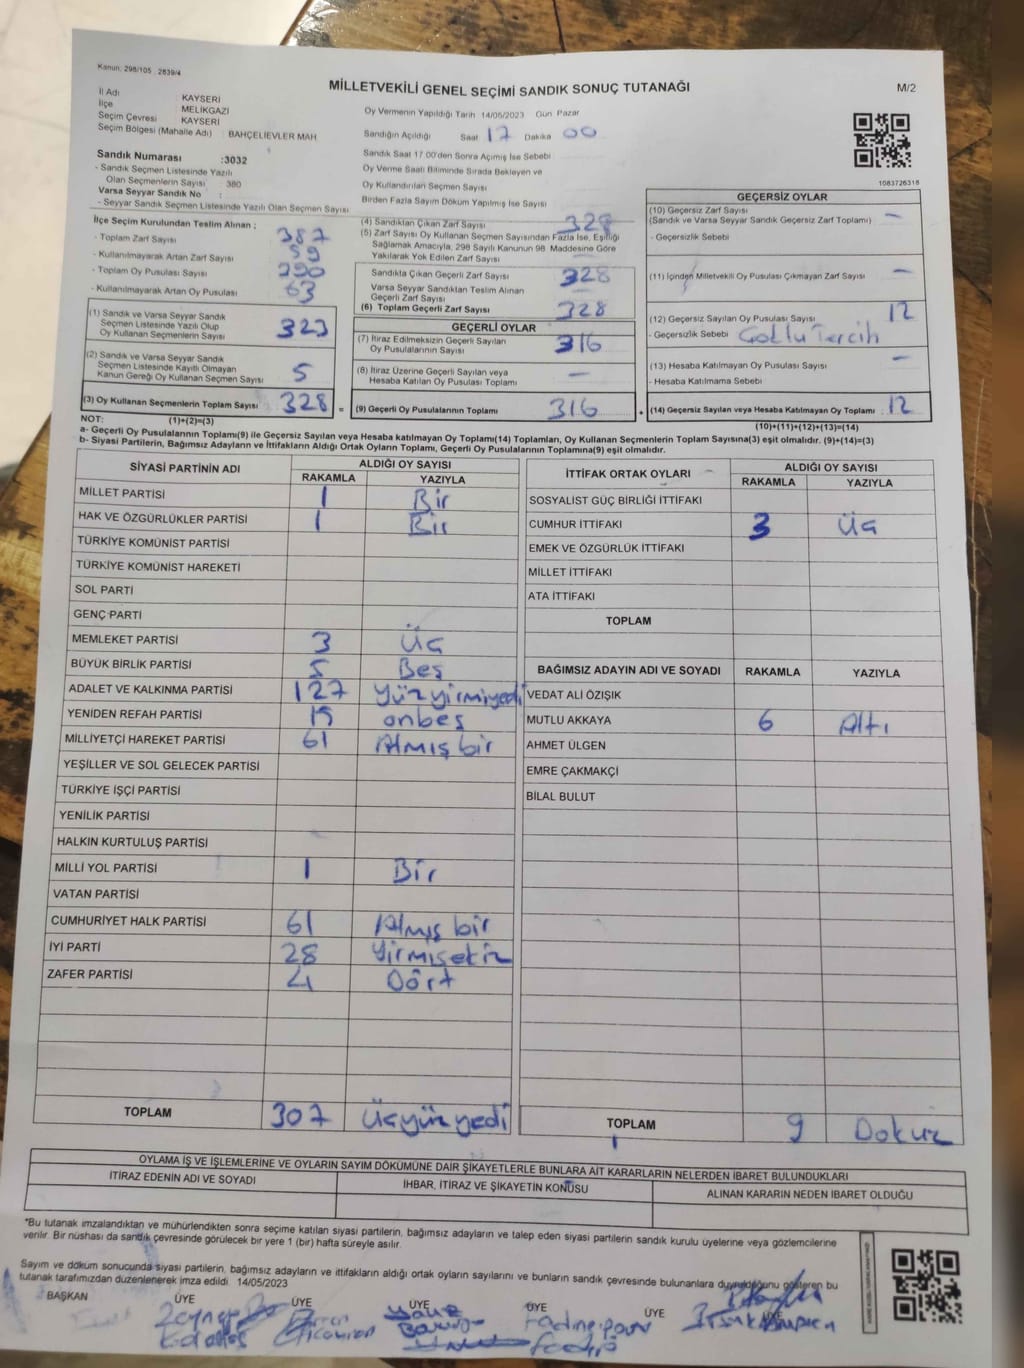 Kanun: 298/105 , 2839/4
MİLLETVEKİLİ GENEL SEÇİMİ SANDIK SONUÇ TUTANAĞI
M/2
İl Adı : KAYSERİ
İlçe : MELİKGAZİ
Seçim Çevresi : KAYSERİ
Seçim Bölgesi (Mahalle Adı) : BAHÇELİEVLER MAH
Sandık Numarası :3032
- Sandık Seçmen Listesinde Yazılı
Olan Seçmenlerin Sayısı : 380
Varsa Seyyar Sandık No :
- Seyyar Sandık Seçmen Listesinde Yazılı Olan Seçmen Sayısı
Oy Vermenin Yapıldığı Tarih 14/05/2023 Gün Pazar
Sandığın Açıldığı Saat 17 Dakika 00
Sandık Saat 17:00'den Sonra Açılmış İse Sebebi
Oy Verme Saati Bitiminde Sırada Bekleyen ve
Oy Kullandırılan Seçmen Sayısı
Birden Fazla Sayım Döküm Yapılmış İse Sayısı
1083726318
İlçe Seçim Kurulundan Teslim Alınan ;
- Toplam Zarf Sayısı 387
- Kullanılmayarak Artan Zarf Sayısı 59
- Toplam Oy Pusulası Sayısı
- Kullanılmayarak Artan Oy Pusulası 63
(1) Sandık ve Varsa Seyyar Sandık
Seçmen Listesinde Yazılı Olup
Oy Kullanan Seçmenlerin Sayısı 323
(2) Sandık ve Varsa Seyyar Sandık
Seçmen Listesinde Kayıtlı Olmayan
Kanun Gereği Oy Kullanan Seçmen Sayısı 5
(3) Oy Kullanan Seçmenlerin Toplam Sayısı 328 =
(4) Sandıktan Çıkan Zarf Sayısı 328
(5) Zarf Sayısı Oy Kullanan Seçmen Sayısından Fazla İse, Eşitliği
Sağlamak Amacıyla, 298 Sayılı Kanunun 98. Maddesine Göre
Yakılarak Yok Edilen Zarf Sayısı
Sandıkta Çıkan Geçerli Zarf Sayısı 328
Varsa Seyyar Sandıktan Teslim Alınan
Geçerli Zarf Sayısı
(6) Toplam Geçerli Zarf Sayısı 328
GEÇERLİ OYLAR
(7) İtiraz Edilmeksizin Geçerli Sayılan
Oy Pusulalarının Sayısı 316
(8) İtiraz Üzerine Geçerli Sayılan veya
Hesaba Katılan Oy Pusulası Toplamı —
(9) Geçerli Oy Pusulalarının Toplamı 316 +
GEÇERSİZ OYLAR
(10) Geçersiz Zarf Sayısı
(Sandık ve Varsa Seyyar Sandık Geçersiz Zarf Toplamı) —
- Geçersizlik Sebebi
(11) İçinden Milletvekili Oy Pusulası Çıkmayan Zarf Sayısı —
(12) Geçersiz Sayılan Oy Pusulası Sayısı 12
- Geçersizlik Sebebi Çoklu Tercih
(13) Hesaba Katılmayan Oy Pusulası Sayısı —
- Hesaba Katılmama Sebebi
(14) Geçersiz Sayılan veya Hesaba Katılmayan Oy Toplamı : 12
NOT: (1)+(2)=(3) (10)+(11)+(12)+(13)=(14)
a- Geçerli Oy Pusulalarının Toplamı(9) ile Geçersiz Sayılan veya Hesaba katılmayan Oy Toplamı(14) Toplamları, Oy Kullanan Seçmenlerin Toplam Sayısına(3) eşit olmalıdır. (9)+(14)=(3)
b- Siyasi Partilerin, Bağımsız Adayların ve İttifakların Aldığı Ortak Oyların Toplamı, Geçerli Oy Pusulalarının Toplamına(9) eşit olmalıdır.
SİYASİ PARTİNİN ADI ALDIĞI OY SAYISI
RAKAMLA YAZIYLA
MİLLET PARTİSİ 1 Bir
HAK VE ÖZGÜRLÜKLER PARTİSİ 1 Bir
TÜRKİYE KOMÜNİST PARTİSİ
TÜRKİYE KOMÜNİST HAREKETİ
SOL PARTİ
GENÇ PARTİ
MEMLEKET PARTİSİ 3 Üç
BÜYÜK BİRLİK PARTİSİ 5 Beş
ADALET VE KALKINMA PARTİSİ 127 Yüzyirmiyedi
YENİDEN REFAH PARTİSİ 15 onbeş
MİLLİYETÇİ HAREKET PARTİSİ 61 Atmış bir
YEŞİLLER VE SOL GELECEK PARTİSİ
TÜRKİYE İŞÇİ PARTİSİ
YENİLİK PARTİSİ
HALKIN KURTULUŞ PARTİSİ
MİLLİ YOL PARTİSİ 1 Bir
VATAN PARTİSİ
CUMHURİYET HALK PARTİSİ 61 Atmış bir
İYİ PARTİ 28 Yirmisekiz
ZAFER PARTİSİ 4 Dört
TOPLAM 307 Üçyüz yedi
İTTİFAK ORTAK OYLARI ALDIĞI OY SAYISI
RAKAMLA YAZIYLA
SOSYALİST GÜÇ BİRLİĞİ İTTİFAKI
CUMHUR İTTİFAKI 3 Üç
EMEK VE ÖZGÜRLÜK İTTİFAKI
MİLLET İTTİFAKI
ATA İTTİFAKI
TOPLAM
BAĞIMSIZ ADAYIN ADI VE SOYADI RAKAMLA YAZIYLA
VEDAT ALİ ÖZIŞIK
MUTLU AKKAYA 6 Altı
AHMET ÜLGEN
EMRE ÇAKMAKÇİ
BİLAL BULUT
TOPLAM 9 Dokuz
OYLAMA İŞ VE İŞLEMLERİNE VE OYLARIN SAYIM DÖKÜMÜNE DAİR ŞİKAYETLERLE BUNLARA AİT KARARLARIN NELERDEN İBARET BULUNDUKLARI
İTİRAZ EDENİN ADI VE SOYADI İHBAR, İTİRAZ VE ŞİKAYETİN KONUSU ALINAN KARARIN NEDEN İBARET OLDUĞU
"Bu tutanak imzalandıktan ve mühürlendikten sonra seçime katılan siyasi partilerin, bağımsız adayların ve talep eden siyasi partilerin sandık kurulu üyelerine veya gözlemcilerine
verilir. Bir nüshası da sandık çevresinde görülecek bir yere 1 (bir) hafta süreyle asılır.
Sayım ve döküm sonucunda siyasi partilerin, bağımsız adayların ve ittifakların aldığı ortak oyların sayılarını ve bunların sandık çevresinde bulunanlara duyrulduğunu gösteren bu
tutanak tarafımızdan düzenlenerek imza edildi. 14/05/2023
BAŞKAN ÜYE ÜYE ÜYE ÜYE ÜYE ÜYE